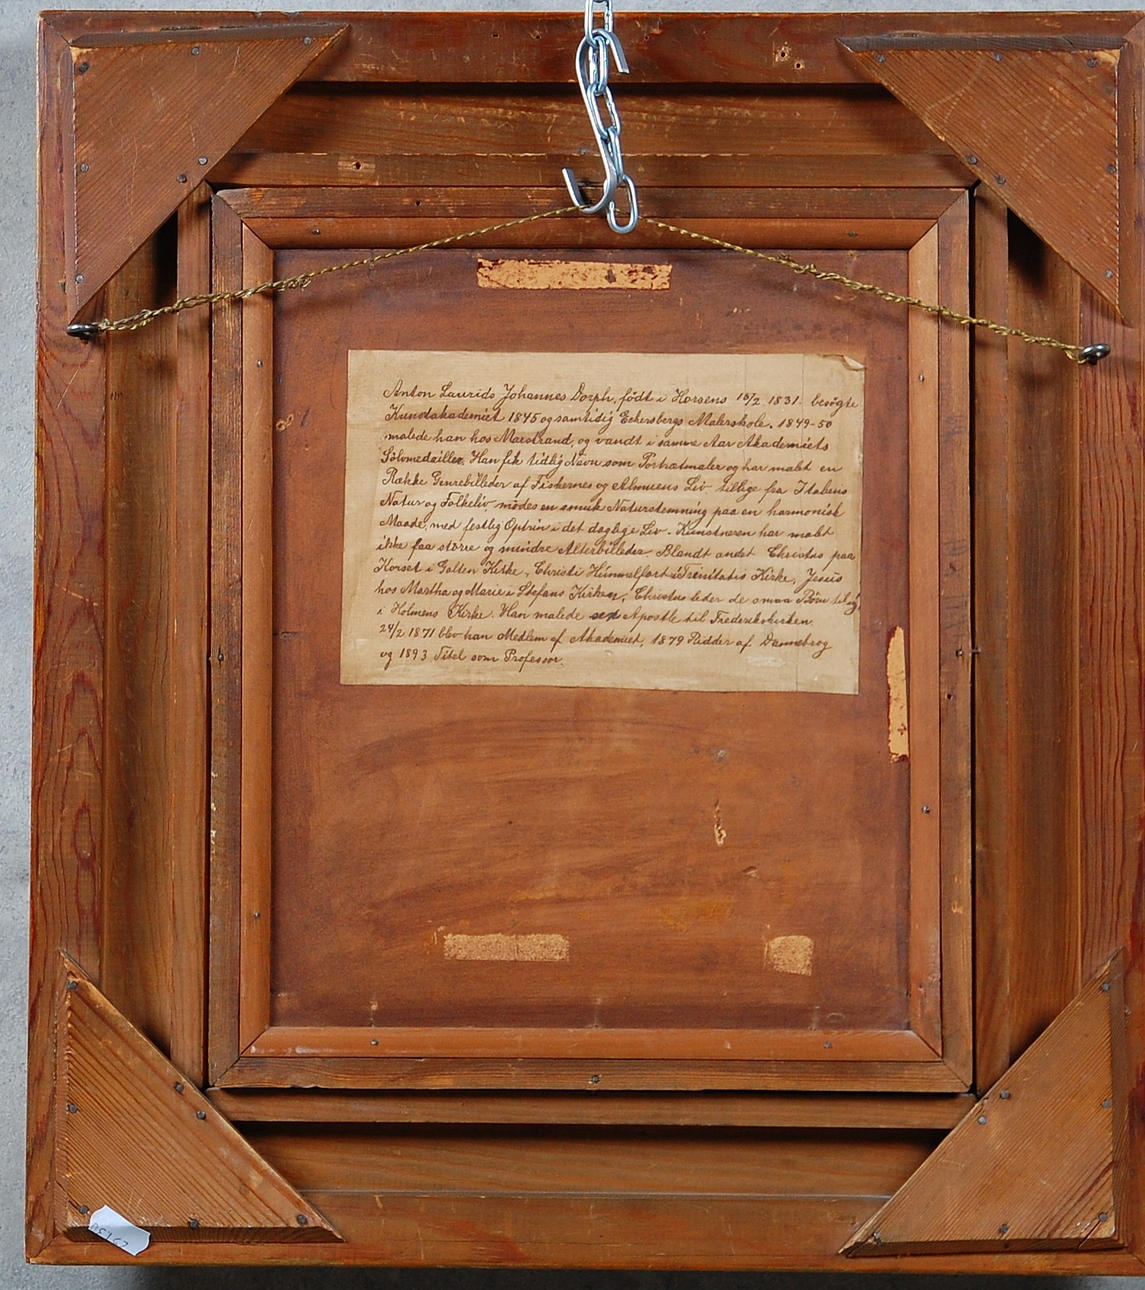 Anton Laurids Johannes Dorph, født i Horsens 15/2 1831. besøgte
Kunstakademiet 1845 og samtidig Eckersbergs Malerskole. 1849-50
malede han hos Marstrand, og vandt i samme Aar Akademiets
Sølvmedaille. Han fik tidlig Navn som Portrætmaler og har malt en
Række Genrebilleder af Fiskernes og Almuens Liv. tillige fra Italiens
Natur og Folkeliv mødes en smuk Naturstemning paa en harmonisk
Maade, med festlig Optrin i det daglige Liv. Kunstneren har malt
ikke faa større og mindre Alterbilleder. Blandt andet Christus paa
Korset i Golten Kirke, Christi Himmelfart i Trinitatis Kirke, Jesus
hos Martha og Marie i Stefans Kirken, Christus leder de smaa Børn til sig
i Holmens Kirke. Han malede sex Apostle til Frederikskirken.
24/2 1871 blev han Medlem af Akademiet, 1879 Ridder af Dannebrog
og 1893 Titel som Professor.